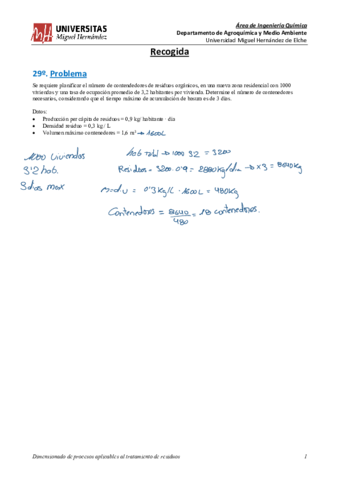 UNIVERSITAS
Miguel Hernández
Área de Ingeniería Química
Departamento de Agroquímica y Medio Ambiente
Universidad Miguel Hernández de Elche
Recogida
29º. Problema
Se requiere planificar el número de contendedores de residuos orgánicos, en una nueva zona residencial con 1000
viviendas y una tasa de ocupación promedio de 3,2 habitantes por vivienda. Determine el número de contenedores
necesarios, considerando que el tiempo máximo de acumulación de basura es de 3 días.
Datos:
• Producción per cápita de residuos = 0,9 kg/ habitante · día
• Densidad residuo = 0,3 kg / L
• Volumen máximo contenedores = 1,6 m³ → 1600L
1000 viviendas
3'2 hab.
3 días max
hab total → 1000 · 3'2 = 3200
Residuos = 3200 · 0'9 = 2880 kg/día → x3 = 8640kg
= 0'3 kg/L · 1600L = 480kg
Contenedores = 8640/480 = 18 contenedores.
Dimensionado de procesos aplicables al tratamiento de residuos
1